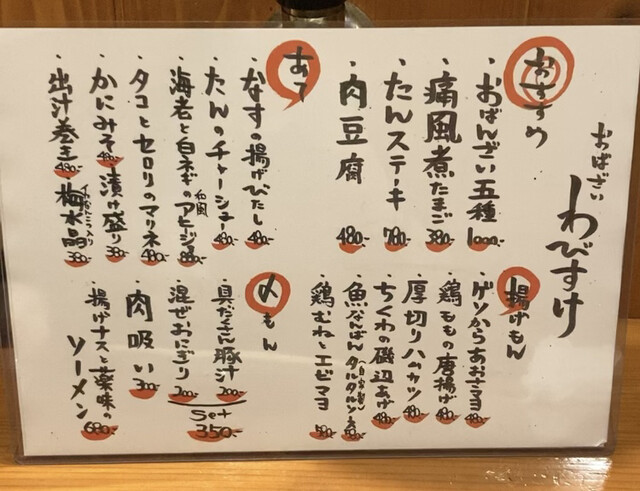 おばんざい
わびすけ
おすすめ
・おばんざい五種 1000.-
・痛風煮たまご 380.-
・たんステーキ 780.-
・肉豆腐 480.-
あて
・なすの揚げびたし 480.-
・たんのチャーシュー 480.-
・海老と白ネギのアヒージョ 和風
・タコとセロリのマリネ 480.-
・かにみそ 480.-
・漬け盛り 380.-
・出汁巻き 480.-
・梅水晶 380.-
揚げもん
・ゲソからあおさマヨ 480.-
・鶏ももの唐揚げ 480.-
・厚切りハムカツ 480.-
・ちくわの磯辺あげ
・魚なんばん 自家製タルタルソース
・鶏むねとエビマヨ
〆もん
・具だくさん豚汁 200.-
・混ぜおにぎり 200.-
Set 350.-
・肉吸い 300.-
・揚げナスと薬味の
ソーメン 680.-